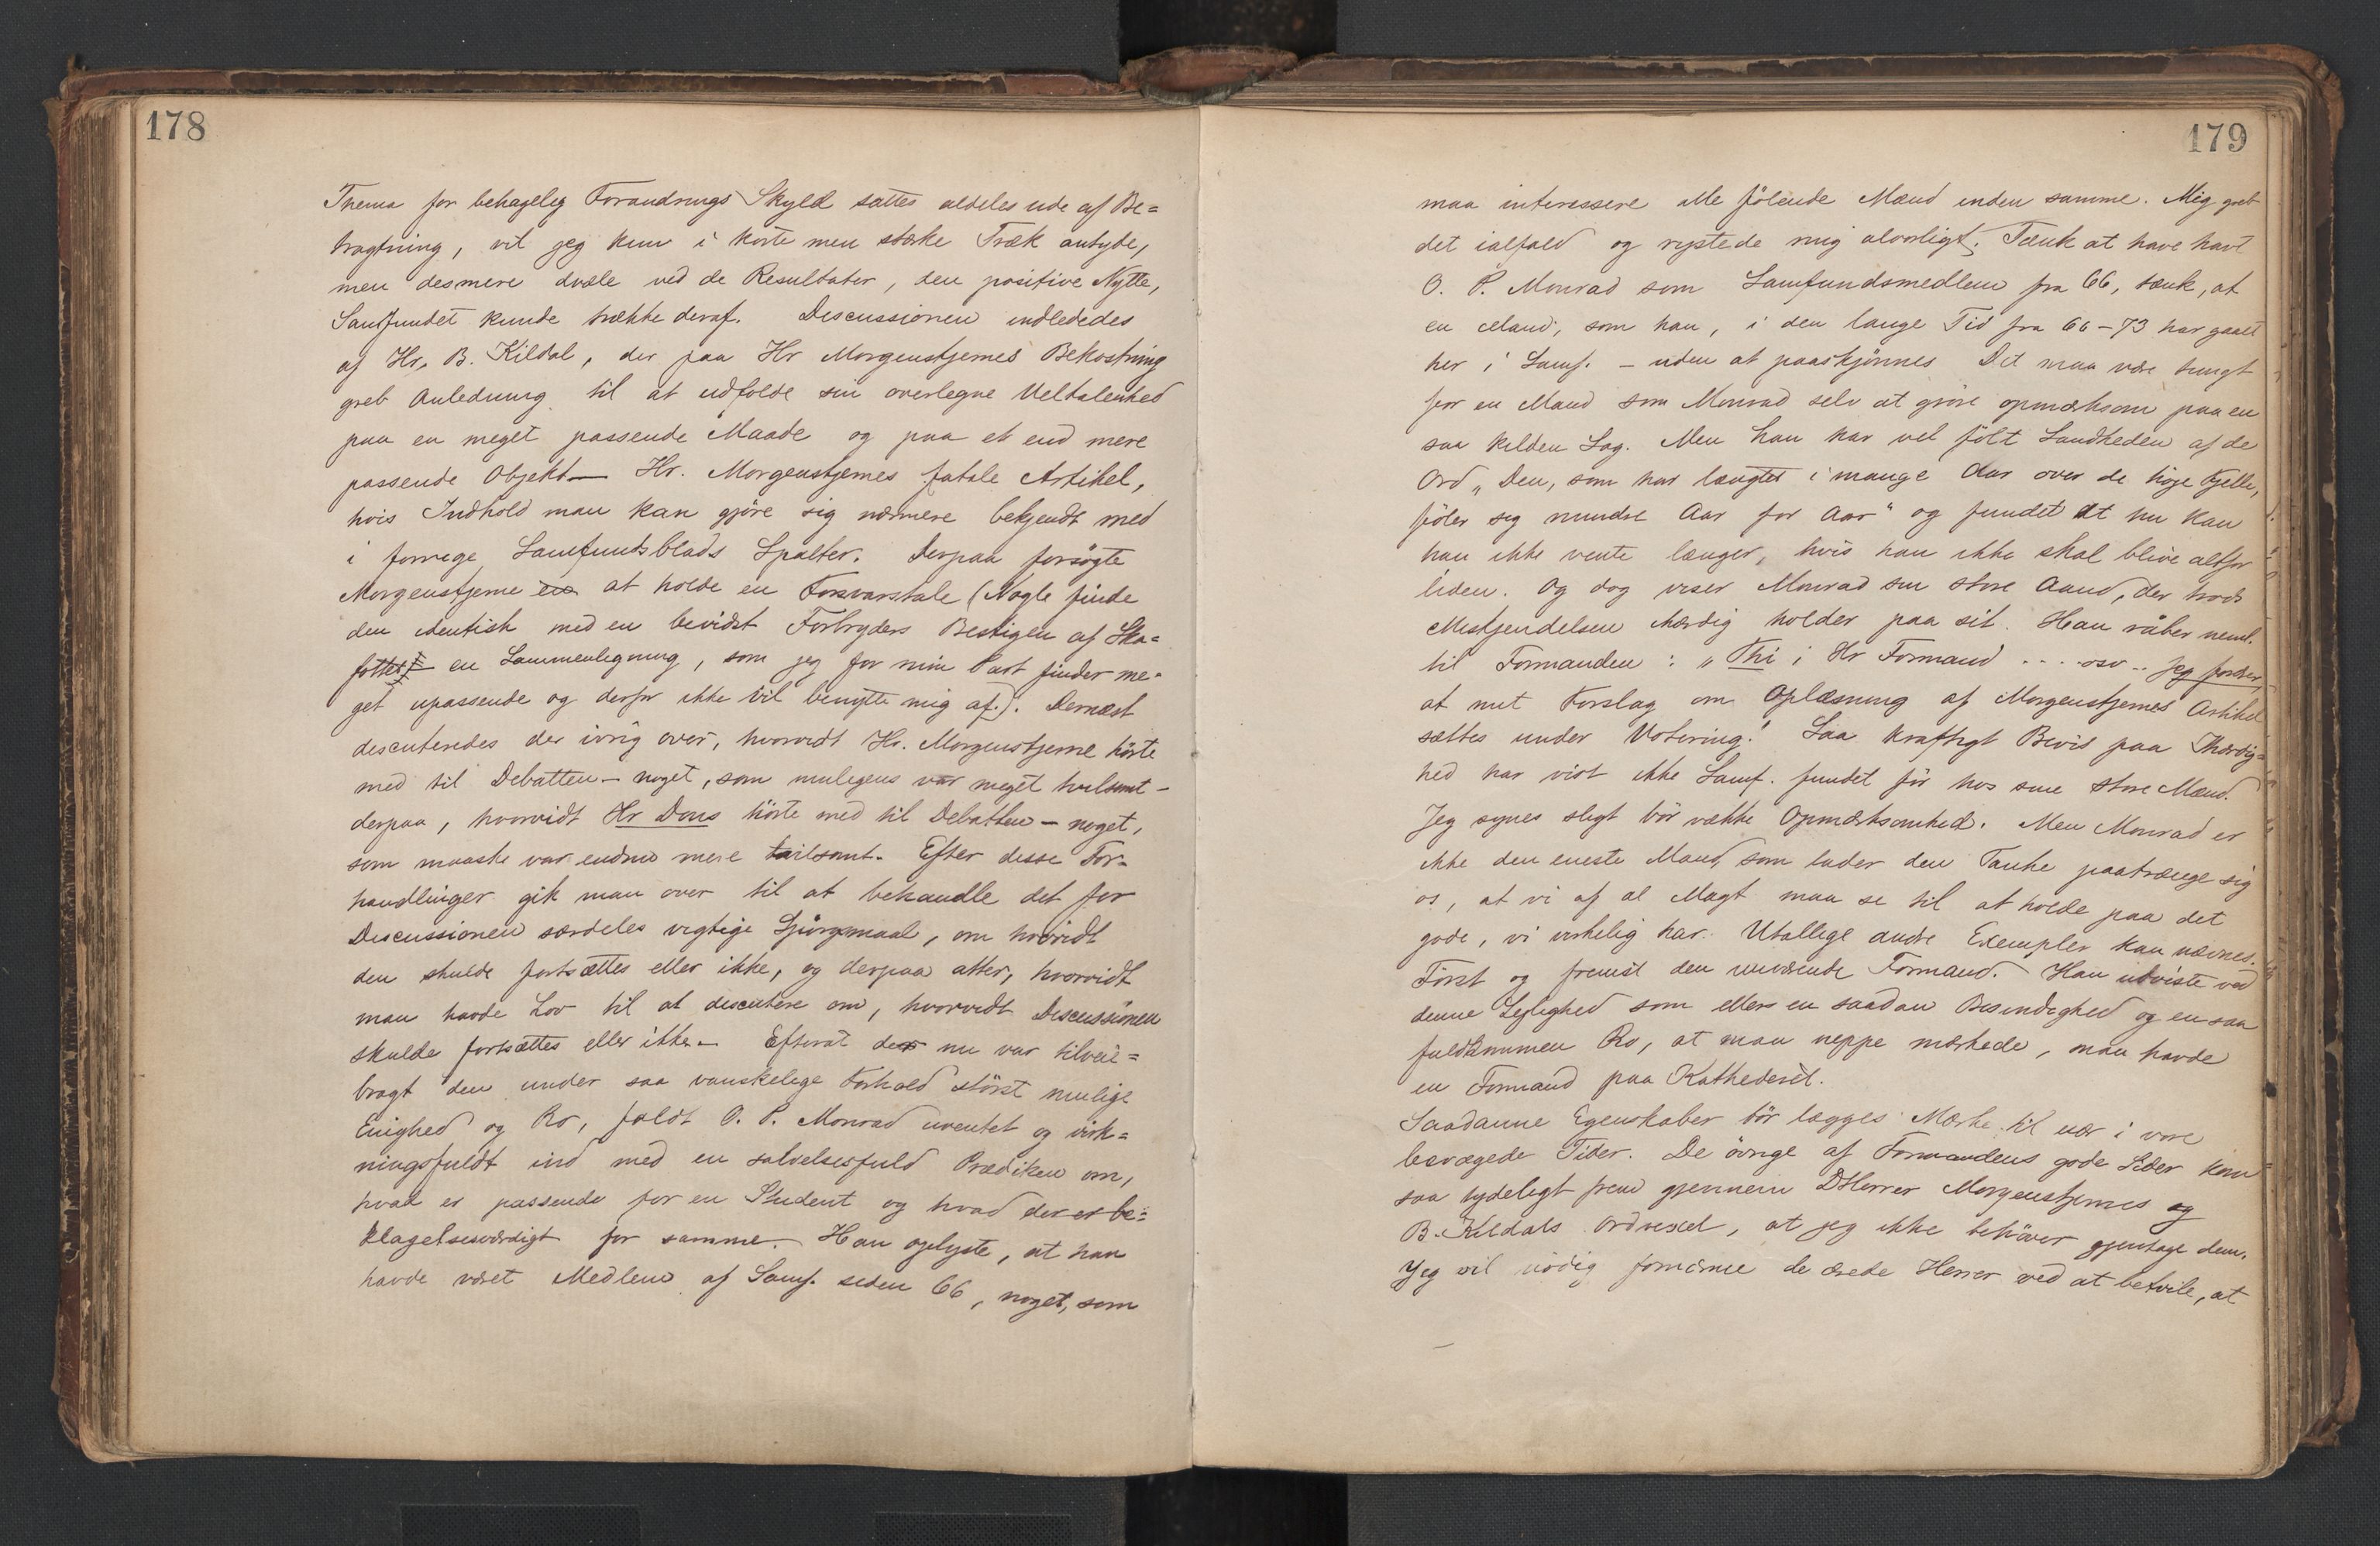 178
Thema for behagelig Forandrings Skyld sattes aldeles ude af Be=
tragtning, vil jeg kun i korte men stærke Træk antyde,
men desmere dvæle ved de Resultater, den positive Nytte,
Samfundet kunde trække deraf. Discussionen indlededes
af Hr. B. Kildal, der paa Hr Morgenstjernes Bekostning
greb Anledning til at udfolde sin overlegne Veltalenhed
paa en meget passende Maade og paa et end mere
passende Objekt — Hr. Morgenstjernes fatale Artikel,
hvis Indhold man kan gjöre sig nærmere bekjendt med
i forrige Samfundsblads Spalter. Derpaa forsögte
Morgenstjerne en at holde en Forsvarstale (Nogle finde
den identisk med en bevidst Forbryders Bestigen af Ska=
fottet — en Sammenligning, som jeg for min Part finder me=
get upassende og derfor ikke vil benytte mig af.). Dernæst
discuteredes der ivrig over, hvorvidt Hr. Morgenstjerne hörte
med til Debatten — noget, som muligens var meget tvilsomt —
derpaa, hvorvidt Hr Dons hörte med til Debatten — noget,
som maaske var endnu mere tvilsomt. Efter disse For=
handlinger gik man over til at behandle det for
Discussionen særdeles vigtige Spörgsmaal, om hvorvidt
den skulde fortsættes eller ikke, og derpaa atter, hvorvidt
man havde Lov til at discutere om, hvorvidt Discussionen
skulde fortsættes eller ikke. — Efterat der nu var tilveie=
bragt den under saa vanskelige Forhold störst mulige
Enighed og Ro, faldt O. P. Monrad uventet og virk=
ningsfuldt ind med en salvelsesfuld Prædiken om,
hvad er passende for en Student og hvad der er be=
klagelsesværdigt for samme. Han oplyste, at han
havde været Medlem af Samf. siden 66, noget, som
179
maa interessere alle fölende Mænd inden samme. Mig greb
det ialfald og rystede mig alvorligt. Tænk at have havt
O. P. Monrad som Samfundsmedlem fra 66, tænk, at
en Mand, som han, i den lange Tid fra 66-73 har gaaet
her i Samf. — uden at paaskjönnes Det maa være tungt
for en Mand som Monrad selv at gjöre opmærksom paa en
saa kilden Sag. Men han har vel fölt Sandheden af de
Ord „Den, som har længtet i mange Aar over de höje Fjelle,
föler sig mindre Aar for Aar" og fundet at nu kan
han ikke vente længer, hvis han ikke skal blive altfor
liden. Og dog viser Monrad sin store Aand, der trods
Miskjendelsen ihærdig holder paa sit. Han råber neml.
til Formanden: „Thi i Hr Formand . . . . osv . . jeg fordrer,
at mit Forslag om Oplæsning af Morgenstjernes Artikel
sættes under Votering! Saa kraftigt Bevis paa Ihærdig=
hed har vist ikke Samf. fundet för hos sine store Mænd.
Jeg synes sligt bör vække Opmærksomhed. Men Monrad er
ikke den eneste Mand som lader den Tanke paatrænge sig
os, at vi af al Magt maa se til at holde paa det
gode, vi virkelig har. Utallige andre Exempler kan nævnes.
Först og fremst den nuværende Formand. Han udviste ved
denne Leilighed som ellers en saadan Besindighed og en saa
fuldkommen Ro, at man neppe mærkede, man havde
en Formand paa Kathederet.
Saadanne Egenskaber bör lægges Mærke til især i vore
bevægede Tider. De övrige af Formandens gode Sider kom
saa tydeligt frem gjennem DHerrer Morgenstjernes og
B. Kildals Ordvexel, at jeg ikke behöver gjentage dem.
Jeg vil nödig fornærme de ærede Herrer ved at betvile, at